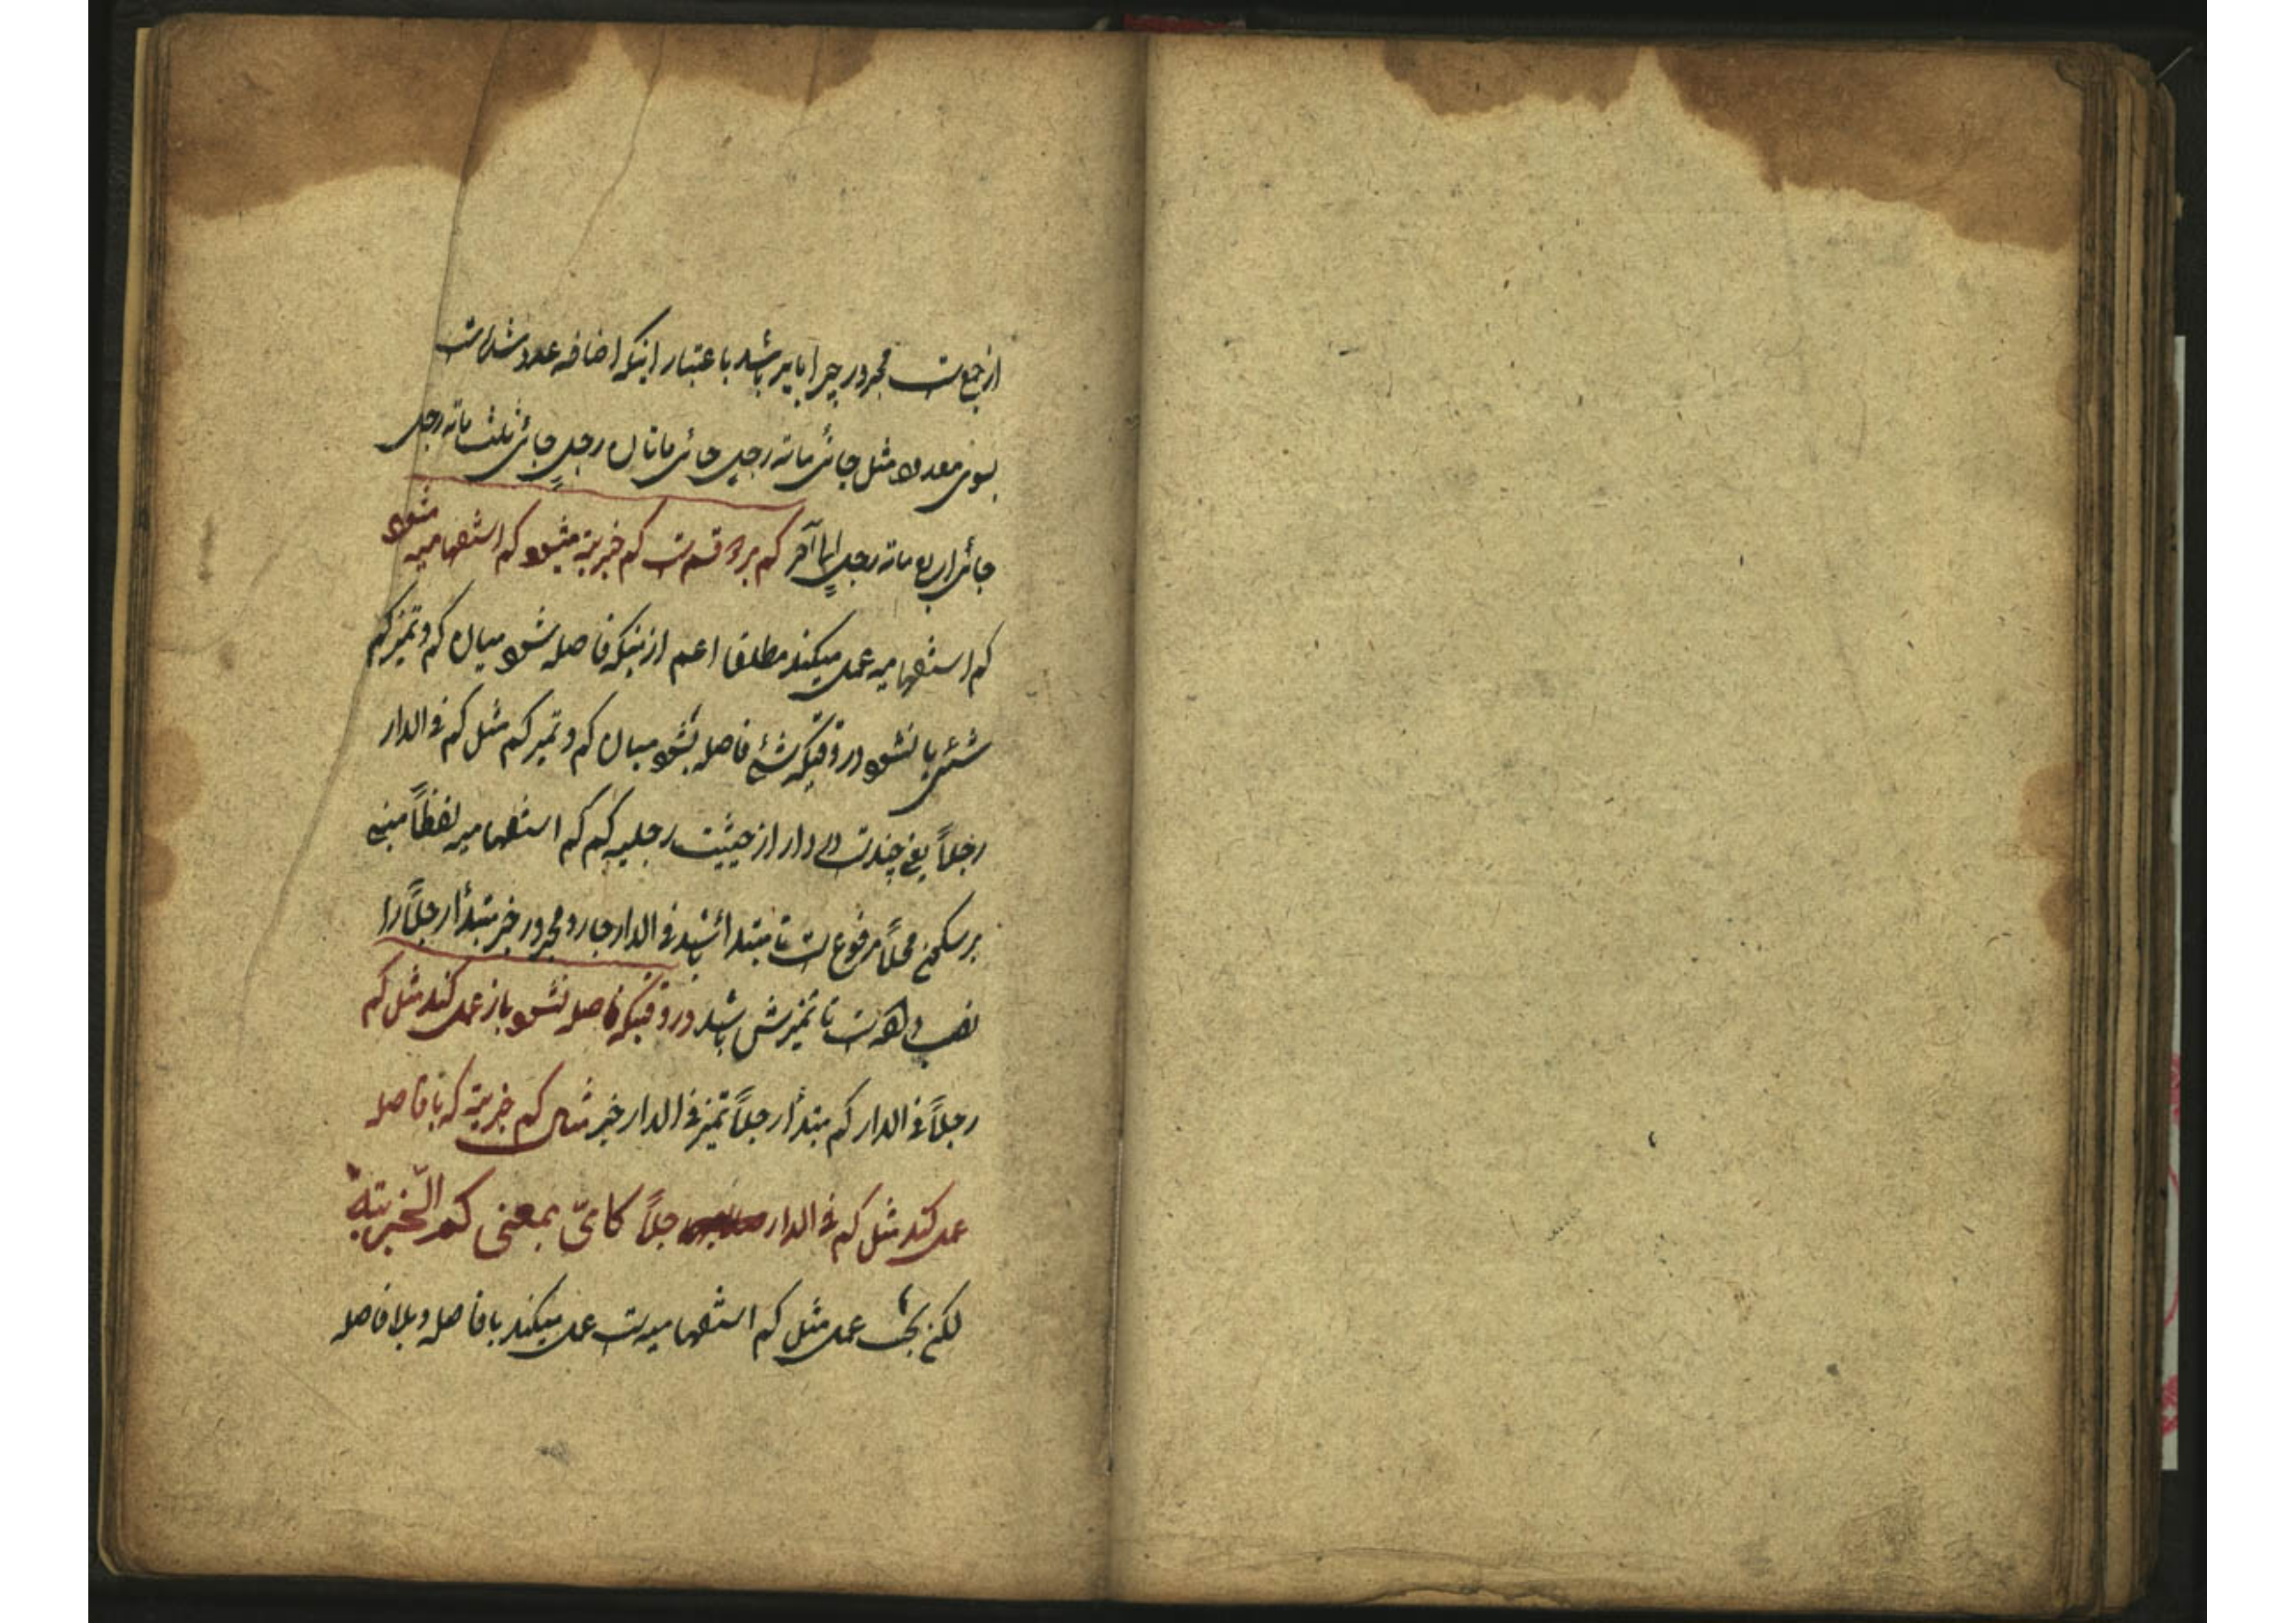 از جمع است مجرور چرا باید باشد باعتبار اینکه اضافه عدد شده است
بسوی معدود مثل جائنی مائة رجلٍ جائنی مائتان رجلٍ جائنی ثلث مائة رجلٍ
جائنی اربع مائة رجلٍ الی آخر کم بر دو قسم است کم خبریة میشود کم استفهامیه میشود
کم استفهامیه عمل میکند مطلقا اعم از اینکه فاصله شود میان کم و تمیز کم
شیئی یا نشود در وقتیکه شیئ فاصله بشود میان کم و تمیز کم مثل کم فی الدار
رجلاً یعنی چند است در دار از حیثیت رجلیه کم کم استفهامیه لفظاً مبنی
بر سکون محلاً مرفوع است تا مبتدا باشد فی الدار جار و مجرور خبر مبتدأ رجلاً را
نصب داده است تا تمیزش باشد در وقتیکه فاصله نشود باز عمل کند مثل کم
رجلاً فی الدار کم مبتدأ رجلاً تمیز فی الدار خبر مثال کم خبریة که با فاصله
عمل کند مثل کم فی الدار رجلاً کایّ بمعنی کم الخبریّة
لکن بحث عمل مثل کم استفهامیه است عمل میکند با فاصله و بلا فاصله